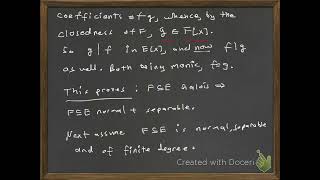 coefficients of g, whence, by the
closedness of F, g ∈ F[x].
So g | f in E[x], and now f | g
as well. Both being monic, f = g.
This proves: F ⊆ E Galois ⇒
F ⊆ E normal + separable.
Next assume F ⊆ E is normal, separable
and of finite degree.
Created with Doceri